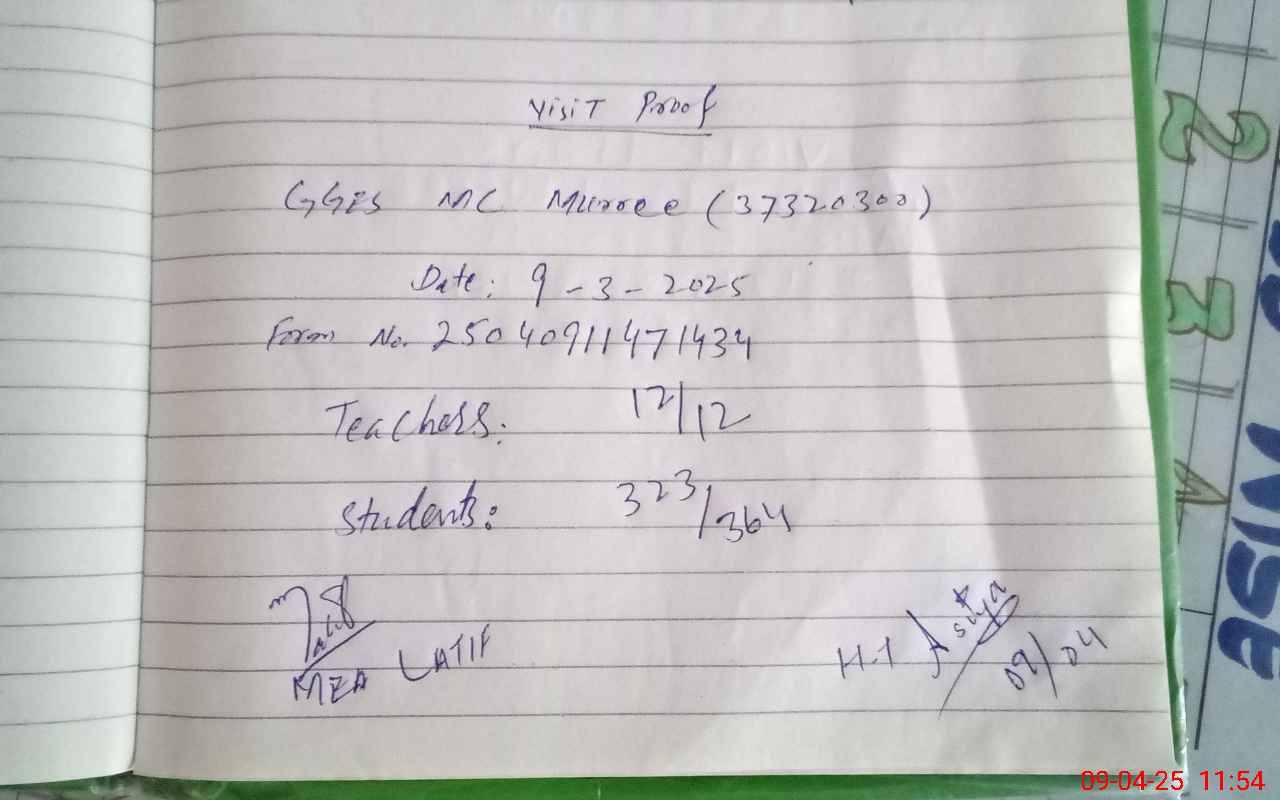 Visit Proof
GGES MC Murree (37320300)
Date: 9-3-2025
Form No. 25040911471434
Teachers: 12/12
Students: 323/364
Latif
MEA LATIF
H.T Asiya
09/04
2
3
4
ASIM
09-04-25 11:54